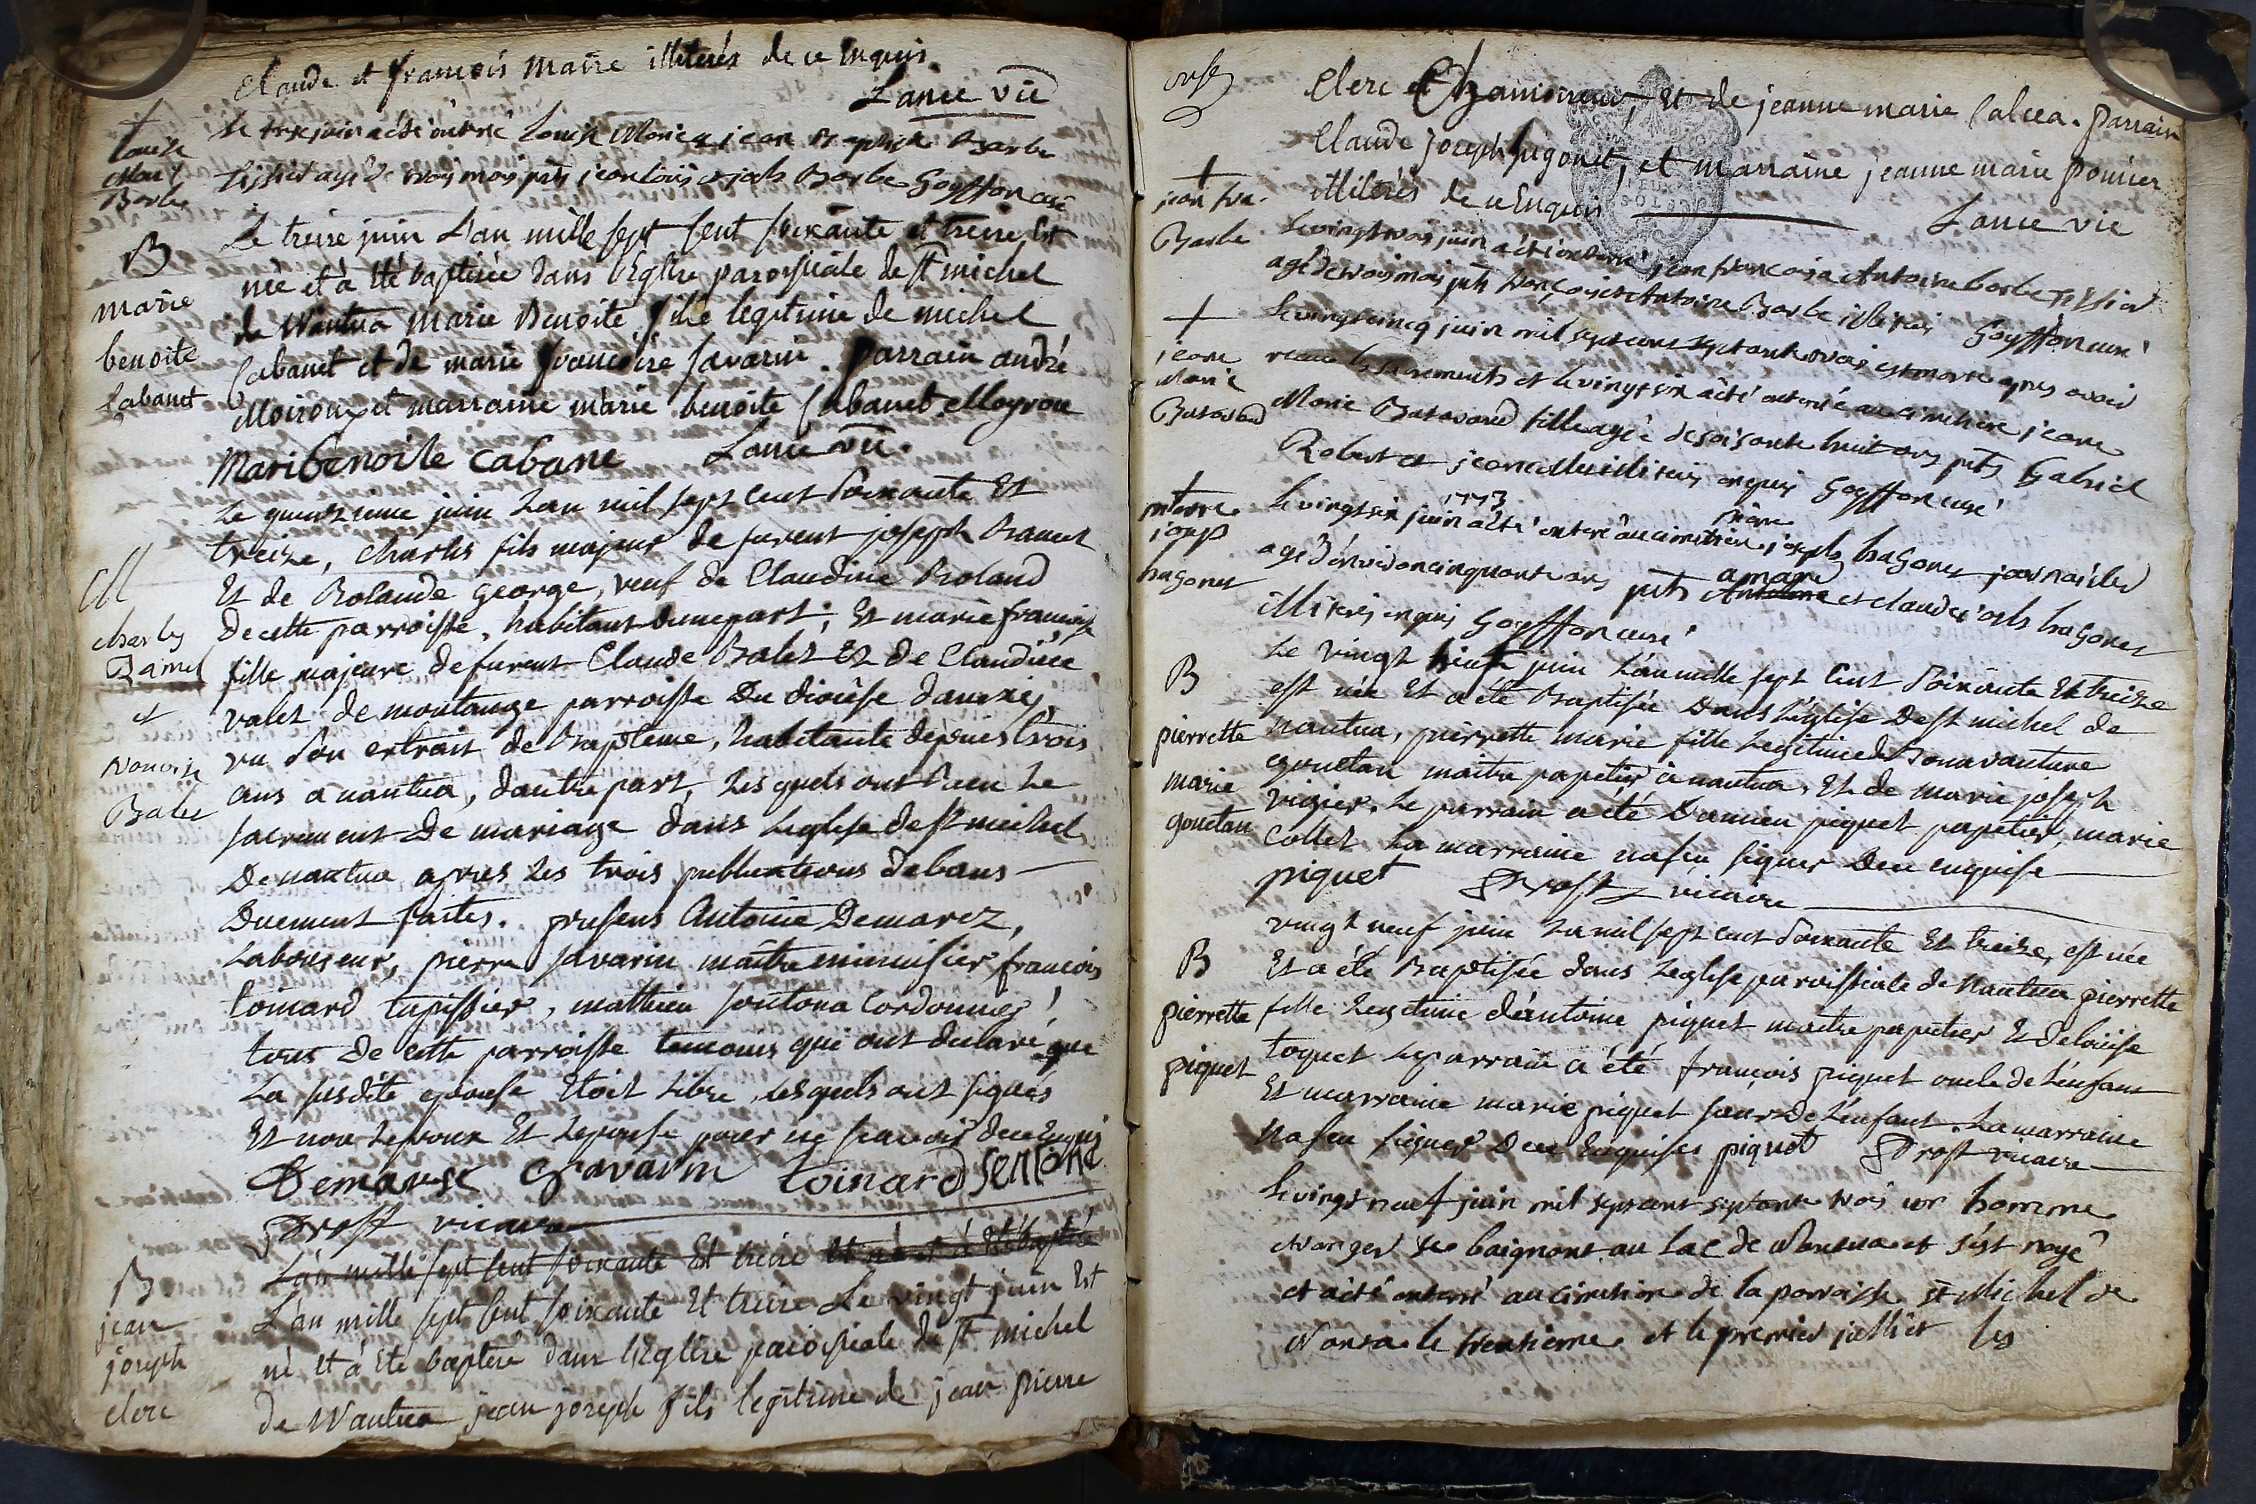 Claude et françois Maire illiterés de ce Enquis.
Lance vic
Le treze juin a été enterré Louise Marie a jean Baptiste Barbe
tissier agé de trois mois pnts jean Louis et joseph Barbe Goyffon curé
Louise
Marie
Barbe
Le treize juin L'an mille sept cent soixante et treize Est
née et à été baptisée dans l'Eglise paroissiale de St michel
de Nantua Marie Benoite fille legitime de michel
Cabanet et de marie françoise Savarin. parrain andré
Moiroux et marraine marie benoite Cabanet Moyroux
Maribenoite Cabane Lance vic.
B
marie
benoite
Cabanet
Le quinzieme juin Lan mil sept cent soixante Et
treize, Charles fils majeur de furent joseph Bramet
Et de Rolande George, veuf de Claudine Roland
de cette parroisse, habitant dune part; Et marie françoise
fille majeure de furent Claude Balet Et de Claudine
valet de montange parroisse Du diocèse dannexis,
vu son extrait de Baptême, habitante dépuis trois
ans a nantua, dautre part, Lesquels ont Recu Le
sacrement De mariage dans Leglise de St michel
De nantua apres Les trois publications de bans
Duement faites. presens Antoine Demarez,
Laboureur, pierre savarin maître menuisier, françois
toinard tapissier, mathieu sontona Cordonnier,
tous de cette parroisse temoins qui ont declaré que
La susdite epouse Etoit Libre, Lesquels ont signés
Et non Lepoux Et Lepouse pour ne scavoir de ce Enquis
Demarese P Savarin toinard sentona
Prost vicaire
M
charles
Bamet
et
françoise
Balet
L'an mille sept cent soixante Et treize Et né et à été baptisé
L'an mille sept cent soixante Et treize Le vingt juin Est
né et à été baptisé dans l'Eglise paroissiale de St michel
de Nantua jean joseph fils legitime de jean pierre
B
jean
joseph
clerc
onse
Clerc et Chamoireux, Et de jeanne marie Calcea. parrain
Claude joseph jugonet, et marraine jeanne marie poncier
illiterés de ce Enquis Lance vic
Le vingt trois juin a été enterré jean françois a Antoine barbe tissier
agé de trois mois pnts françois et Antoine Barbe illiterés Goyffon curé
jean fra.
Barbe
Le vingt cinq juin mil sept cent septante trois est morte apres avoir
recu les sacrements et le vingt six a été enterrée au cimetiere jeane
Marie Batavard fille agée de soisante huit ans pnts Gabriel
Robert et jean illiterés enquis Goyffon curé
jeane
Marie
Batavard
1773
Le vingt six juin a été enterré au cimetiere pierre joseph hugonet journailer
agé d'environ cinquante ans pnts Antoine amare et claude joseph hugonet
illiterés enquis Goyffon curé
pierre
joseph
hugonet
Le vingt huit juin L'an mille sept Cent Soixante Et treize
est née Et a été Baptisée Dans L'église De St michel de
nantua, pierrette marie fille Legitime de Bonavanture
goneton maitre papetier à nantua, Et de marie joseph
vigier. Le parrain a été Damien piquet papetier, marie
Collet La marraine na seu signer De ce enquise
piquet Prost vicaire
B
pierrette
marie
gonetan
vingt neuf juin La mil sept cent soixante Et treize, est née
Et a été Baptisée dans Leglise parroissiale de Nantua pierrette
fille Legitime d'antoine piquet maitre papetier Et de loüise
toquet Le parrain a été françois piquet oncle de Lenfant
Et marraine marie piquet sœur de Lenfant. La marraine
Na seu signer De ce Enquises piquet Prost vicaire
B
pierrette
piquet
Le vingt neuf juin mil sept cent septante trois un homme
etranger se baignant au Lac de Nantua et s'est noyé
et a été enterré au cimetiere de la parroisse St Michel de
Nantua le trentieme et le premier juilliet les